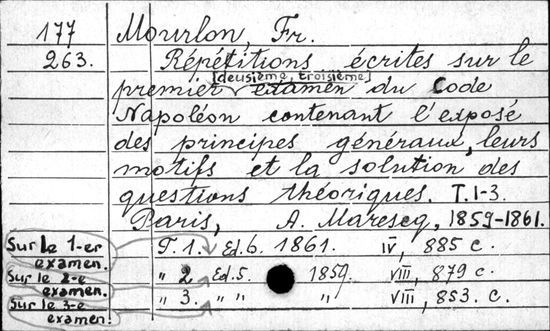 177 Mourlon, Fr.
263. Répétitions écrites sur le
[deusième, troisième]
premier examen du Code
Napoléon contenant l'exposé
des principes généraux, leurs
motifs et la solution des
questions théoriques. T.1-3.
Paris, A. Marescq, 1859-1861.
Sur le 1-er examen. T. 1. Ed. 6. 1861. IV, 885 c.
Sur le 2-e examen. " 2 Ed. 5. 1859. VIII, 879 c.
Sur le 3-e examen. " 3. " " " VIII, 853. c.